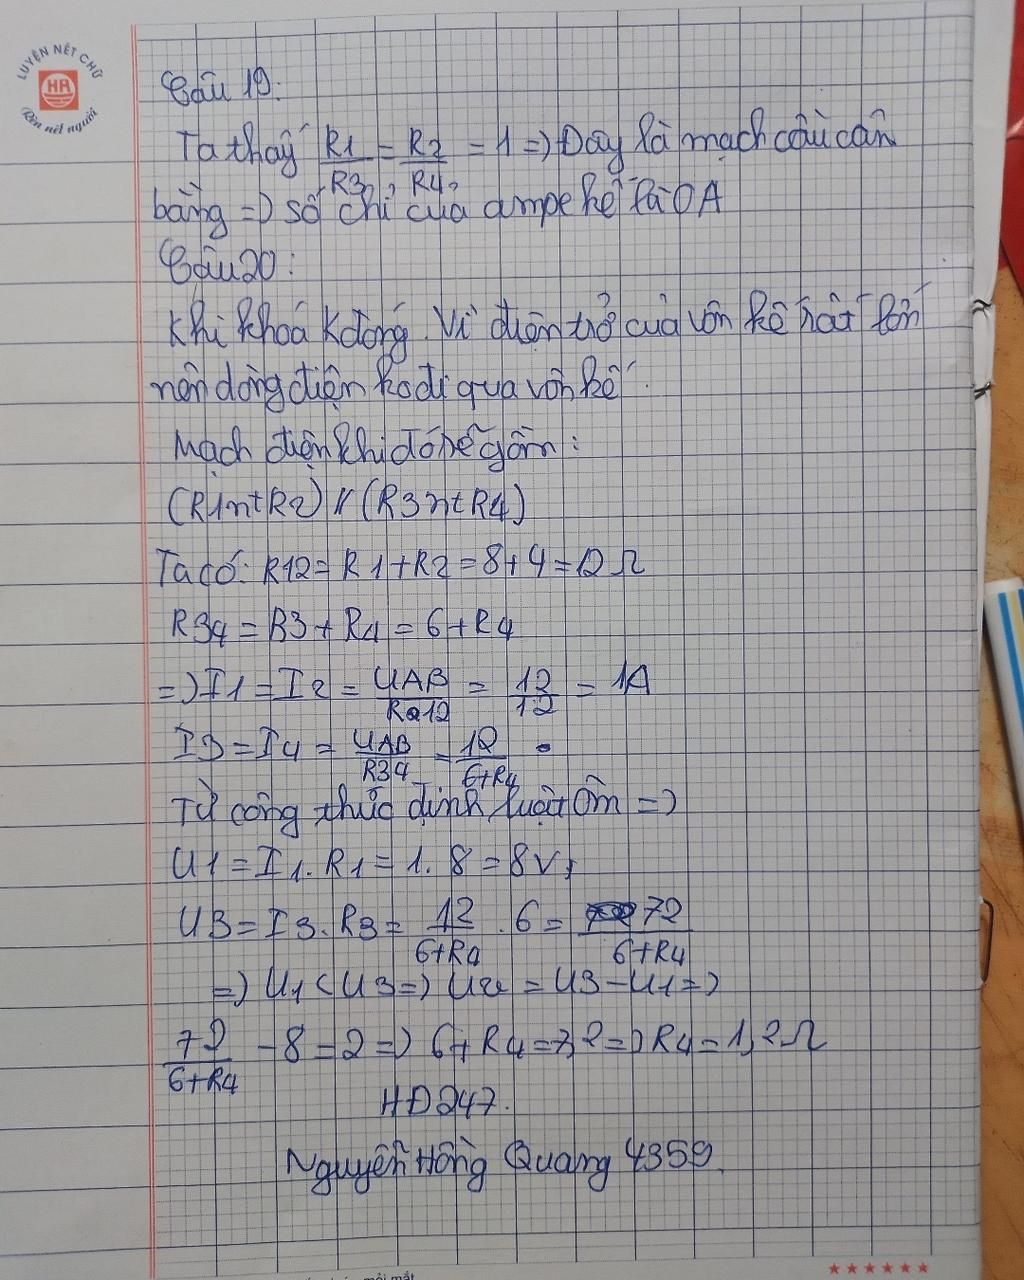 LUYỆN NÉT CHỮ
HA
Rèn nết người
Câu 19:
Ta thấy R1/R3 = R2/R4 = 1 => Đây là mạch cầu cân
bằng => số chỉ của ampe kế là 0A
Câu 20:
Khi khoá K đóng. Vì điện trở của vôn kế rất lớn
nên dòng điện ko đi qua vôn kế.
Mạch điện khi đó sẽ gồm:
(R1ntR2) // (R3ntR4)
Ta có: R12 = R1 + R2 = 8 + 4 = 12 Ω
R34 = R3 + R4 = 6 + R4
=> I1 = I2 = UAB/R12 = 12/12 = 1A
I3 = I4 = UAB/R34 = 12/6+R4
Từ công thức định luật Ôm =>
U1 = I1. R1 = 1. 8 = 8V,
U3 = I3. R3 = 12/6+R4 . 6 = 72/6+R4
=> U1 < U3 => Uv = U3 - U1 =>
72/6+R4 - 8 = 2 => 6 + R4 = 7,2 => R4 = 1,2 Ω
HĐ247.
Nguyễn Hồng Quang 4359.